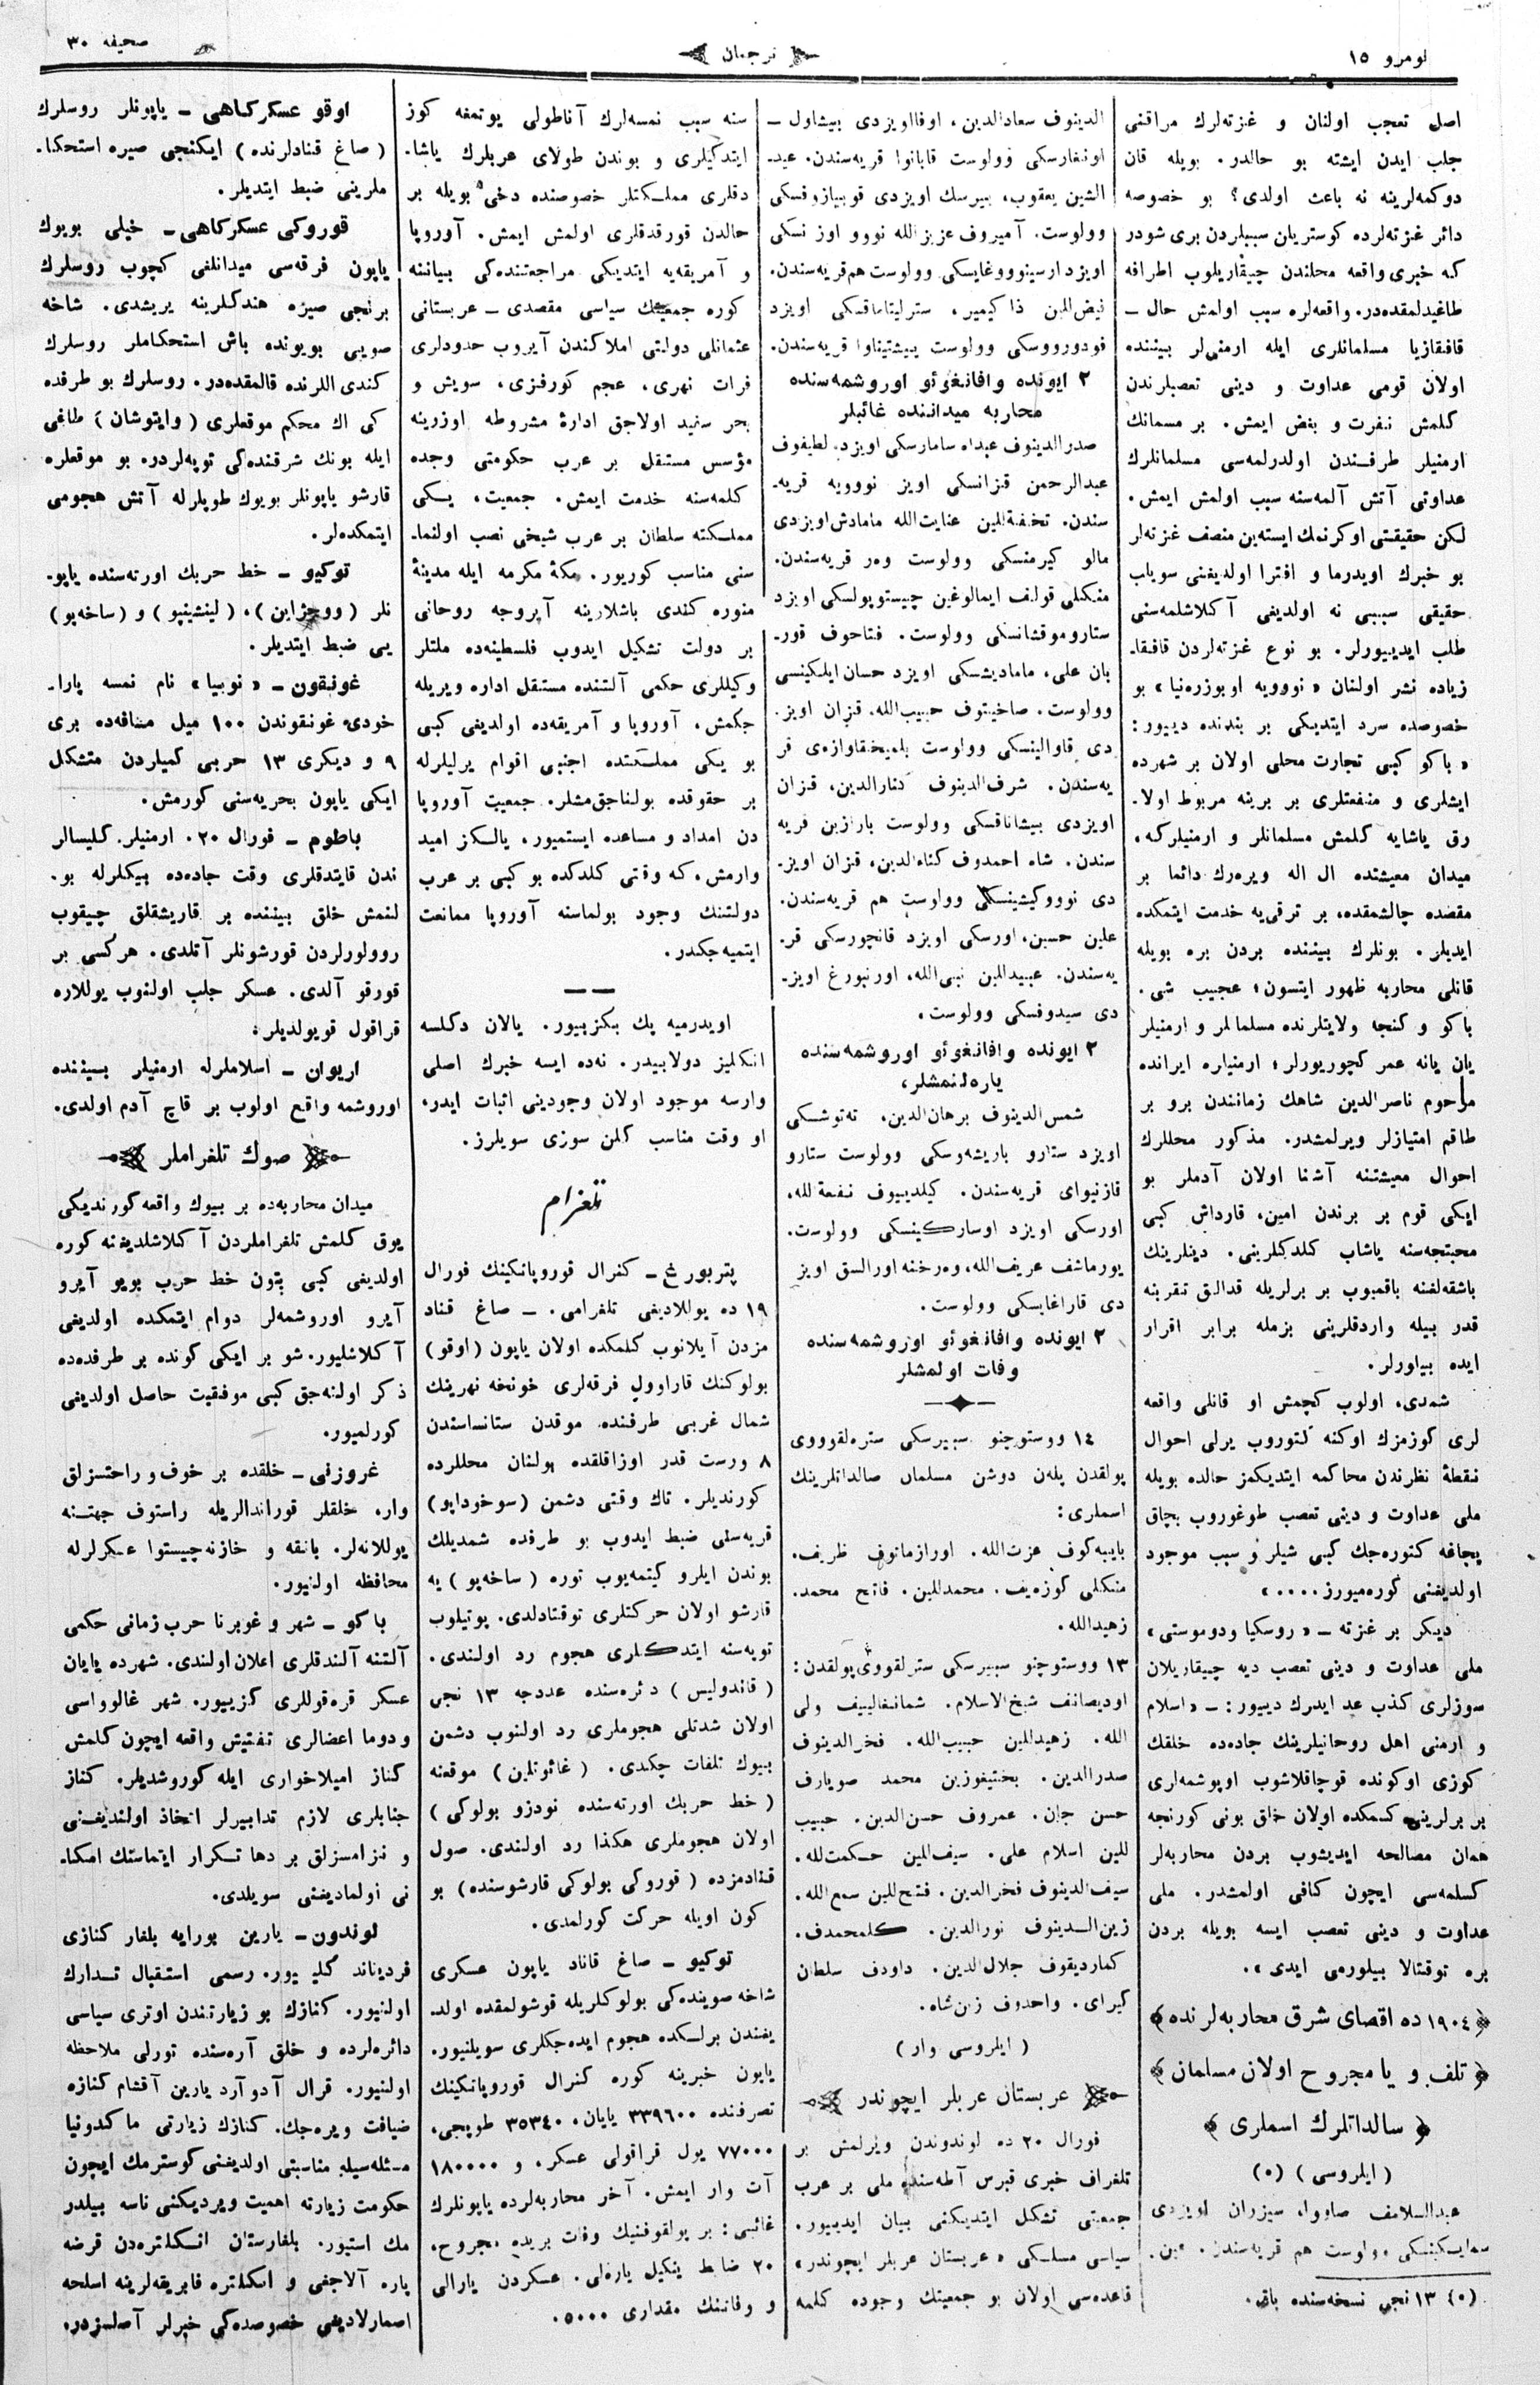 نومرو ١٥
ترجمان
صحيفه ٣٠
اصل تعجب اولنان و غزته‌لرك مراقنى
جلب ايدن ايشته بو حالدر. بويله قان
دوكمه‌لرينه نه باعث اولدى؟ بو خصوصه
دائر غزته‌لرده كوستريلان سببلردن برى شودر
كه خبرى واقعه محلندن چيقاريلوب اطرافه
طاغيدلمقده‌در. واقعه‌لره سبب اولمش حال ــ
قافقازيا مسلمانلرى ايله ارمنى‌لر بيننده
اولان قومى عداوت و دينى تعصبلرندن
كلمش نفرت و بغض ايمش. بر مسمانك
ارمنيلر طرفندن اولدرلمه‌سى مسلمانلرك
عداوتى آتش آلمه‌سنه سبب اولمش ايمش.
لكن حقيقتى اوكرنمك ايسته‌ين منصف غزته‌لر
بو خبرك اويدرما و افترا اولديغنى سوياب
حقيقى سببى نه اولديغى آكلاشلمه‌سنى
طلب ايدييورلر. بو نوع غزته‌لردن قافقا-
زياده نشر اولنان «نوويه اوبوزره‌نيا» بو
خصوصده سرد ايتديكى بر بندنده دييور:
«باكو كبى تجارت محلى اولان بر شهرده
ايشلرى و منفعتلرى بر برينه مربوط اولا-
رق ياشايه كلمش مسلمانلر و ارمنيلركه،
ميدان معيشتده ال اله ويره‌رك دائما بر
مقصده چالشمقده، بر ترقى‌يه خدمت ايتمكده
ايديلر. بونلرك بيننده بردن بره بويله
قانلى محاربه ظهور ايتسون؛ عجيب شى.
باكو و كنجه ولايتلرنده مسلمانلر و ارمنيلر
يان يانه عمر كچوريورلر؛ ارمنيلره ايرانده
مرحوم ناصرالدين شاهك زمانندن برو بر
طاقم امتيازلر ويرلمشدر. مذكور محللرك
احوال معيشتنه آشنا اولان آدملر بو
ايكى قوم بر برندن امين، قارداش كبى
محبتجه‌سنه ياشاب كلدكلرينى. دينلرينك
باشقه‌لغنه باقميوب بر برلريله قدالق تقربنه
قدر بيله واردقلرينى بزمله برابر اقرار
ايده بيلورلر.
شمدى، اولوب كچمش او قانلى واقعه
لرى كوزمزك اوكنه كتوروب يرلى احوال
نقطهٔ نظرندن محاكمه ايتديكمز حالده بويله
ملى عداوت و دينى تعصب طوغوروب بچاق
بچاغه كتوره‌جك كبى شيلر و سبب موجود
اولديغنى كوره‌ميورز....»
ديكر بر غزته ــ «روسكيا ودوموستى»
ملى عداوت و دينى تعصب ديه چيقاريلان
سوزلرى كذب عد ايدرك دييور: ــ «اسلام
و ارمنى اهل روحانيلرينك جاده‌ده خلقك
كوزى اوكونده قوچاقلاشوب اوپوشمه‌لرى
بر برلرينى كسمكده اولان خلق بونى كورنجه
همان مصالحه ايديشوب بردن محاربه‌لر
كسلمه‌سى ايچون كافى اولمشدر. ملى
عداوت و دينى تعصب ايسه بويله بردن
بره توقتالا بيلورمى ايدى».
﴿١٩٠٤ ده اقصاى شرق محاربه‌لرنده﴾
﴿تلف و يا مجروح اولان مسلمان﴾
﴿سالداتلرك اسملرى﴾
(ايلروسى) (٠)
عبدالسلامف صاووا، سيزران اويزدى
وولوست هم قريه‌سندن.
(٠) ١٣ نجى نسخه‌سنده باق.
الدينوف سعادالدين، اوفااويزدى بيشاول ــ
اونغارسكى وولوست قابانوا قريه‌سندن. عيد-
الشين يعقوب، بيرسك اويزدى قوبيازوفسكى
وولوست. آميروف عزيزالله نووو اوزنسكى
اويزد ارسينووغايسكى وولوست هم قريه‌سندن.
فيض‌المين ذاكيمير، سترليتاماقسكى اويزد
فودورووسكى وولوست بيشتيناوا قريه‌سندن.
٢ ايونده وافانغوئو اوروشمه‌سنده
محاربه ميداننده غائبلر
صدرالدينوف عبداه سامارسكى اويزد. لطيفوف
عبدالرحمن قزانسكى اويز نوويه قريه-
سندن. تخفة‌المين عنايت‌الله مامادش‌اويزدى
مالو كيرمنسكى وولوست وه‌ر قريه‌سندن.
منكلى قولف ايمالوغين چيستوپولسكى اويزد
ستاروموقشانسكى وولوست. فتاحوف قور-
بان على، ماماديشسكى اويزد حسان ايلكينسى
وولوست. صاخيتوف حبيب‌الله، قزان اويز-
دى قاوالينسكى وولوست بلميخقاوازه‌ى قر
يه‌سندن. شرف‌الدينوف كنارالدين، قزان
اويزدى بيشاناقسكى وولوست بارازين قريه
سندن. شاه احمدوف كناه‌الدين، قزان اويز-
دى نووو كيشينسكى وولوست هم قريه‌سندن.
علين حسين، اورسكى اويزد قانچورسكى قر-
يه‌سندن. عبيدالمين نبى‌الله، اورنبورغ اويز-
دى سيدوفسكى وولوست.
٢ ايونده وافانغوئو اوروشمه‌سنده
ياره‌لنمشلر،
شمس‌الدينوف برهان‌الدين، ته‌توشكى
اويزد ستارو باريشه‌وسكى وولوست ستارو
قازنيواى قريه‌سندن. كيلدييوف نفعة‌لله،
اورسكى اويزد اوساركينسكى وولوست.
يورماشف عريف‌الله، وه‌رخنه اورالسق اويز
دى قاراغايسكى وولوست.
٢ ايونده وافانغوئو اوروشمه‌سنده
وفات اولمشلر
١٤ ووستوچنو سيبيرسكى ستره‌لقوووى
پولقدن پله‌ن دوشن مسلمان صالداتلرينك
اسملرى:
بايبه‌كوف عزت‌الله. اورازمانوف ظريف.
منكلى كوزه‌يف. محمدالمين. فاتح محمد.
زهيدالله.
١٣ ووستوچنو سيبيرسكى سترلقووى پولقدن:
اوديصانف شيخ‌الاسلام. شمانغالييف ولى
الله. زهيدالمين حبيب‌الله. فخرالدينوف
صدرالدين. بختيغوزين محمد صويارف
حسن جان. عمروف حسن‌الدين. حبيب
للين اسلام على. سيف‌المين حكمت‌لله.
سيف‌الدينوف فخرالدين. فتح‌للين سمع‌الله.
زين‌الدينوف نورالدين. كلمحمدف.
كمارديقوف جلال‌الدين. داودف سلطان
كيراى. واحدوف زين‌شاه.
(ايلروسى وار)
عربستان عربلر ايچوندر
فورال ٢٠ ده لوندوندن ويرلمش بر
تلغراف خبرى قبرس آطه‌سنده ملى بر عرب
جمعيتى تشكل ايتديكنى بيان ايدييور.
سياسى مسلكى «عربستان عربلر ايچوندر»
قاعده‌سى اولان بو جمعيتك وجوده كلمه
سنه سبب نمسه‌لرك آناطولى يوتمغه كوز
ايتدكيلرى و بوندن طولاى عربلرك ياشا-
دقلرى مملكتلر خصوصنده دخى بويله بر
حالدن قورقدقلرى اولمش ايمش. آوروپا
و آمريقه‌يه ايتديكى مراجعتنده‌كى بياننه
كوره جمعيتك سياسى مقصدى ــ عربستانى
عثمانلى دولتى املاكندن آيروب حدودلرى
فرات نهرى، عجم كورفزى، سويش و
بحر سفيد اولاجق ادارهٔ مشروطه اوزرينه
مؤسس مستقل بر عرب حكومتى وجده
كلمه‌سنه خدمت ايمش. جمعيت، يكى
مملكته سلطان بر عرب شيخى نصب اولنما-
سنى مناسب كوريور. مكهٔ مكرمه ايله مدينهٔ
منوره كندى باشلارينه آيروجه روحانى
بر دولت تشكيل ايدوب فلسطينه‌ده ملتلر
وكيللرى حكمى آلتنده مستقل اداره ويريله
جكمش. آوروپا و آمريقه‌ده اولديغى كبى
بو يكى مملكتده اجنبى اقوام يرليلرله
بر حقوقده بولناجق‌مشلر. جمعيت آوروپا
دن امداد و مساعده ايستميور، يالكز اميد
وارمش، كه وقتى كلدكده بو كبى بر عرب
دولتنك وجود بولماسنه آوروپا ممانعت
ايتميه‌جكدر.
اويدرميه پك بكزييور. يالان دكلسه
انكليز دولابيدر. نه‌ده ايسه خبرك اصلى
وارسه موجود اولان وجودينى اثبات ايدر،
او وقت مناسب كلن سوزى سويلرز.
تلغرام
پتربورغ ــ كنرال قوروپاتكينك فورال
١٩ ده يوللاديغى تلغرامى. ــ صاغ قناد
مزدن آيلانوب كلمكده اولان ياپون (اوقو)
بولوكنك قاراوول فرقه‌لرى خونخه نهرينك
شمال غربى طرفنده، موقدن ستانساسندن
٨ ورست قدر اوزاقلقده بولنان محللرده
كورنديلر. تاك وقتى دشمن (سوخوداپو)
قريه‌سنى ضبط ايدوب بو طرفده شمديلك
بوندن ايلرو كيتمه‌يوب توره (ساخه‌پو) يه
قارشو اولان حركتلرى توقتادلدى. پوتيلوب
توپه‌سنه ايتدكلرى هجوم رد اولندى.
(قاندوليس) دئره‌سنده عددجه ١٣ نجى
اولان شدتلى هجوملرى رد اولنوب دشمن
بيوك تلفات چكدى. (غائوتلين) موقعنه
(خط حربك اورته‌سنده نودزو بولوكى)
اولان هجوملرى هكذا رد اولندى. صول
قنادمزده (قوروكى بولوكى قارشوسنده) بو
كون اويله حركت كورلمدى.
توكيو ــ صاغ قاناد ياپون عسكرى
شاخه صوينده‌كى بولوكلريله قوشولمقده اولد-
يغندن برلكده هجوم ايده‌جكلرى سويلنيور.
ياپون خبرينه كوره كنرال قوروپاتكينك
تصرفنده ٣٣٩٦٠٠ يايان، ٣٥٣٤٠ طوپجى،
٧٧٠٠٠ يول قراقولى عسكر، و ١٨٠٠٠٠
آت وار ايمش. آخر محاربه‌لرده ياپونلرك
غائبى: بر پولقوفنيك وفات بريده مجروح،
٢٠ ضابط ينكيل ياره‌لى. عسكردن يارالى
و وفاتنك مقدارى ٥٠٠٠.
اوقو عسكركاهى ــ ياپونلر روسلرك
(صاغ قنادلرنده) ايكنجى صيره استحكا-
ملرينى ضبط ايتديلر.
قوروكى عسكركاهى ــ خيلى بويوك
ياپون فرقه‌سى ميدانلغى كچوب روسلرك
برنجى صيره هندكلرينه يريشدى. شاخه
صويى بويونده باش استحكاملر روسلرك
كندى اللرنده قالمقده‌در. روسلرك بو طرفده
كى اك محكم موقعلرى (وايتوشان) طاغى
ايله بونك شرقنده‌كى توپه‌لردر. بو موقعلره
قارشو ياپونلر بويوك طوپلرله آتش هجومى
ايتمكده‌لر.
توكيو ــ خط حربك اورته‌سنده ياپو-
نلر (ووچزاين). (لينشينپو) و (ساخه‌پو)
يى ضبط ايتديلر.
غونقون ــ «نوبيا» نام نمسه پارا-
خودى غونقوندن ١٠٠ ميل مسافه‌ده برى
٩ و ديكرى ١٣ حربى كميلردن متشكل
ايكى ياپون بحريه‌سنى كورمش.
باطوم ــ فورال ٢٠. ارمنيلر كليسالر
ندن قايتدقلرى وقت جاده‌ده بيكلرله بو-
لنمش خلق بيننده بر قاريشقلق چيقوب
روولورلردن قورشونلر آتلدى. هركسى بر
قورقو آلدى. عسكر جلب اولنوب يوللاره
قراقول قويولديلر:
اريوان ــ اسلاملرله ارمنيلر بيننده
اوروشمه واقع اولوب بر قاچ آدم اولدى.
صوك تلغراملر
ميدان محاربه‌ده بر بيوك واقعه كورنديكى
يوق كلمش تلغراملردن آكلاشلديغنه كوره
اولديغى كبى بتون خط حرب بويو آيرو
آيرو اوروشمه‌لر دوام ايتمكده اولديغى
آكلاشليور. شو بر ايكى كونده بر طرفده‌ده
ذكر اولنه‌جق كبى موفقيت حاصل اولديغى
كورلميور.
غروزنى ــ خلقده بر خوف و راحتسزلق
وار. خلقلر قوراندالريله راستوف جهتنه
يوللانه‌لر. بانقه و خازنه‌چيستوا عسكرلرله
محافظه اولنيور.
باكو ــ شهر و غوبرنا حرب زمانى حكمى
آلتنه آلندقلرى اعلان اولندى. شهرده يايان
عسكر قره‌قوللرى كزييور. شهر غالوواسى
و دوما اعضالرى تفتيش واقعه ايچون كلمش
كناز اميلاخوارى ايله كوروشديلر. كناز
جنابلرى لازم تدابيرلر اتخاذ اولنديغنى
و نزامسزلق بر دها تكرار ايتماسنك امكا-
نى اولماديغنى سويلدى.
لوندون ــ يارين بورايه بلغار كنازى
فرديناند كليور. رسمى استقبال تدارك
اولنيور. كنازك بو زيارتندن اوترى سياسى
دائره‌لرده و خلق آره‌سنده تورلى ملاحظه
اولنيور. قرال آدوآرد يارين آقشام كنازه
ضيافت ويره‌جك. كنازك زيارتى ماكدونيا
مسئله‌سيله مناسبتى اولديغنى كوسترمك ايچون
حكومت زيارته اهميت ويرديكنى ناسه بيلدر
مك استيور. بلغارستان انكلتره‌دن قرضه
پاره آلاجغى و انكلتره فابريقه‌لرينه اسلحه
اصمارلاديغى خصوصده‌كى خبرلر آصلسزدر.